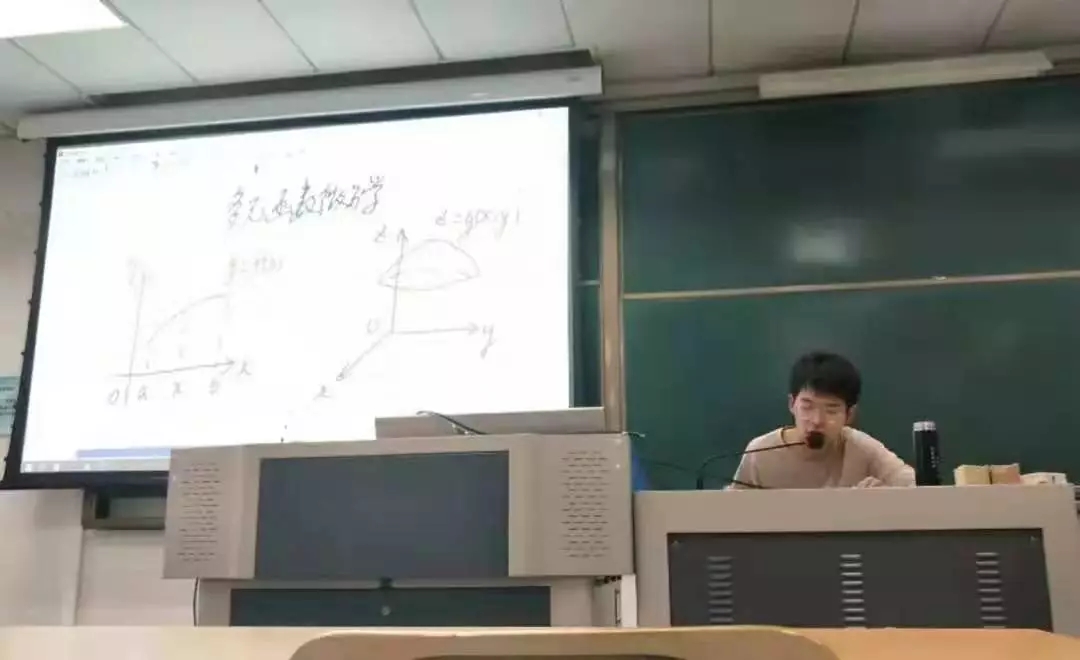 多元函数微分学
y
y=f(x)
O a x b x
z
z=g(x,y)
O
y
x